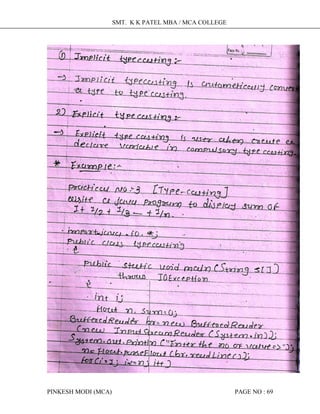 SMT. K K PATEL MBA / MCA COLLEGE
1) Implicit typecasting :-
→ Implicit typecasting is automatically convert
a type to typecasting.
2) Explicit typecasting :-
→ Explicit type casting is user when create or
declare variable in compulsory type casting.
* Example :-
practical No:-3 [Type-casting]
write a java program to display sum of
1+ 1/2 + 1/3 -- + 1/n.
import java.io.*;
public class typecasting
{
public static void main(String s[])
throws IOException
{
int i;
float n, sum=0;
BufferedReader br=new BufferedReader
(new InputStreamReader(System.in));
System.out.println("Enter the no of value=>");
n=Float.parseFloat(br.readLine());
for(i=1; i<=n; i++)
PINKESH MODI (MCA)
PAGE NO : 69